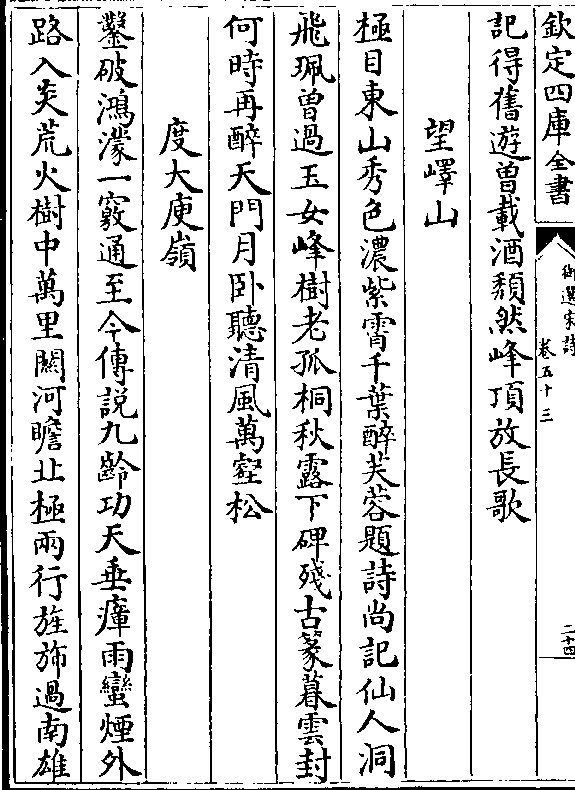 欽定四庫全書
御選宋詩
卷五十三
二十四
記得舊遊曽載酒頽然峰頂放長歌
望嶧山
極目東山秀色濃紫霄千葉醉芙蓉題詩尚記仙人洞
飛珮曽過玉女峰樹老孤桐秋露下碑殘古篆暮雲封
何時再醉天門月卧聽清風萬壑松
度大庾嶺
鑿破鴻濛一竅通至今傳説九齡功天垂瘴雨蠻煙外
路入炎荒火樹中萬里闗河瞻北極兩行旌斾過南雄